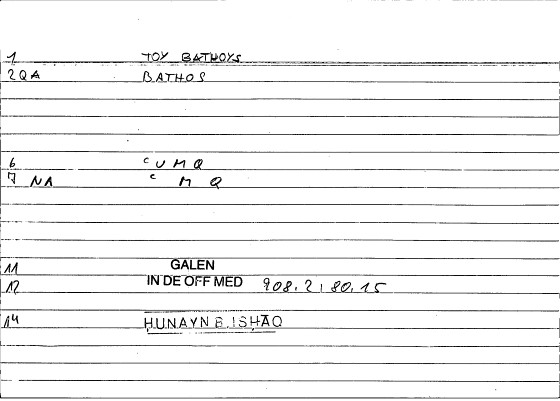 1 TOY BATHOYS
2 QA BATHOS
6 c U M Q
7 NA c M Q
11 GALEN
12 IN DE OFF MED 908.2;80.15
14 ḤUNAYN B. ISḤĀQ